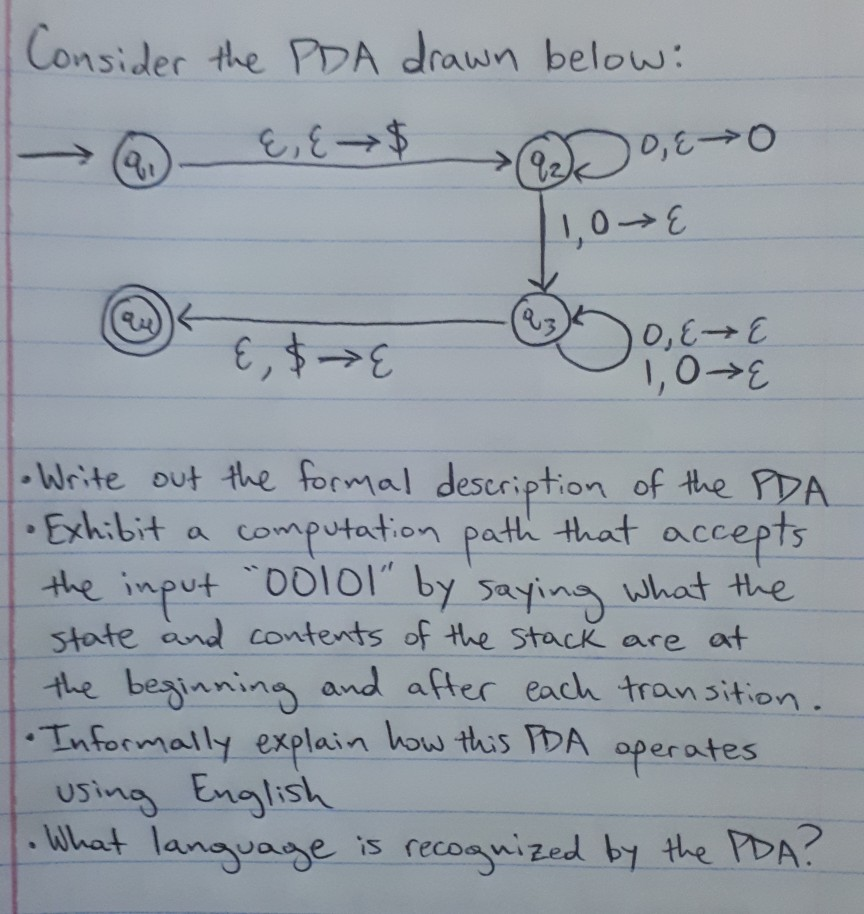 Consider the PDA drawn below:
q₁ ε, ε → $ q₂ 0, ε → 0
1, 0 → ε
q₄ ε, $ → ε q₃ 0, ε → ε
1, 0 → ε
• Write out the formal description of the PDA
• Exhibit a computation path that accepts
the input "00101" by saying what the
state and contents of the stack are at
the beginning and after each transition.
• Informally explain how this PDA operates
using English
• What language is recognized by the PDA?